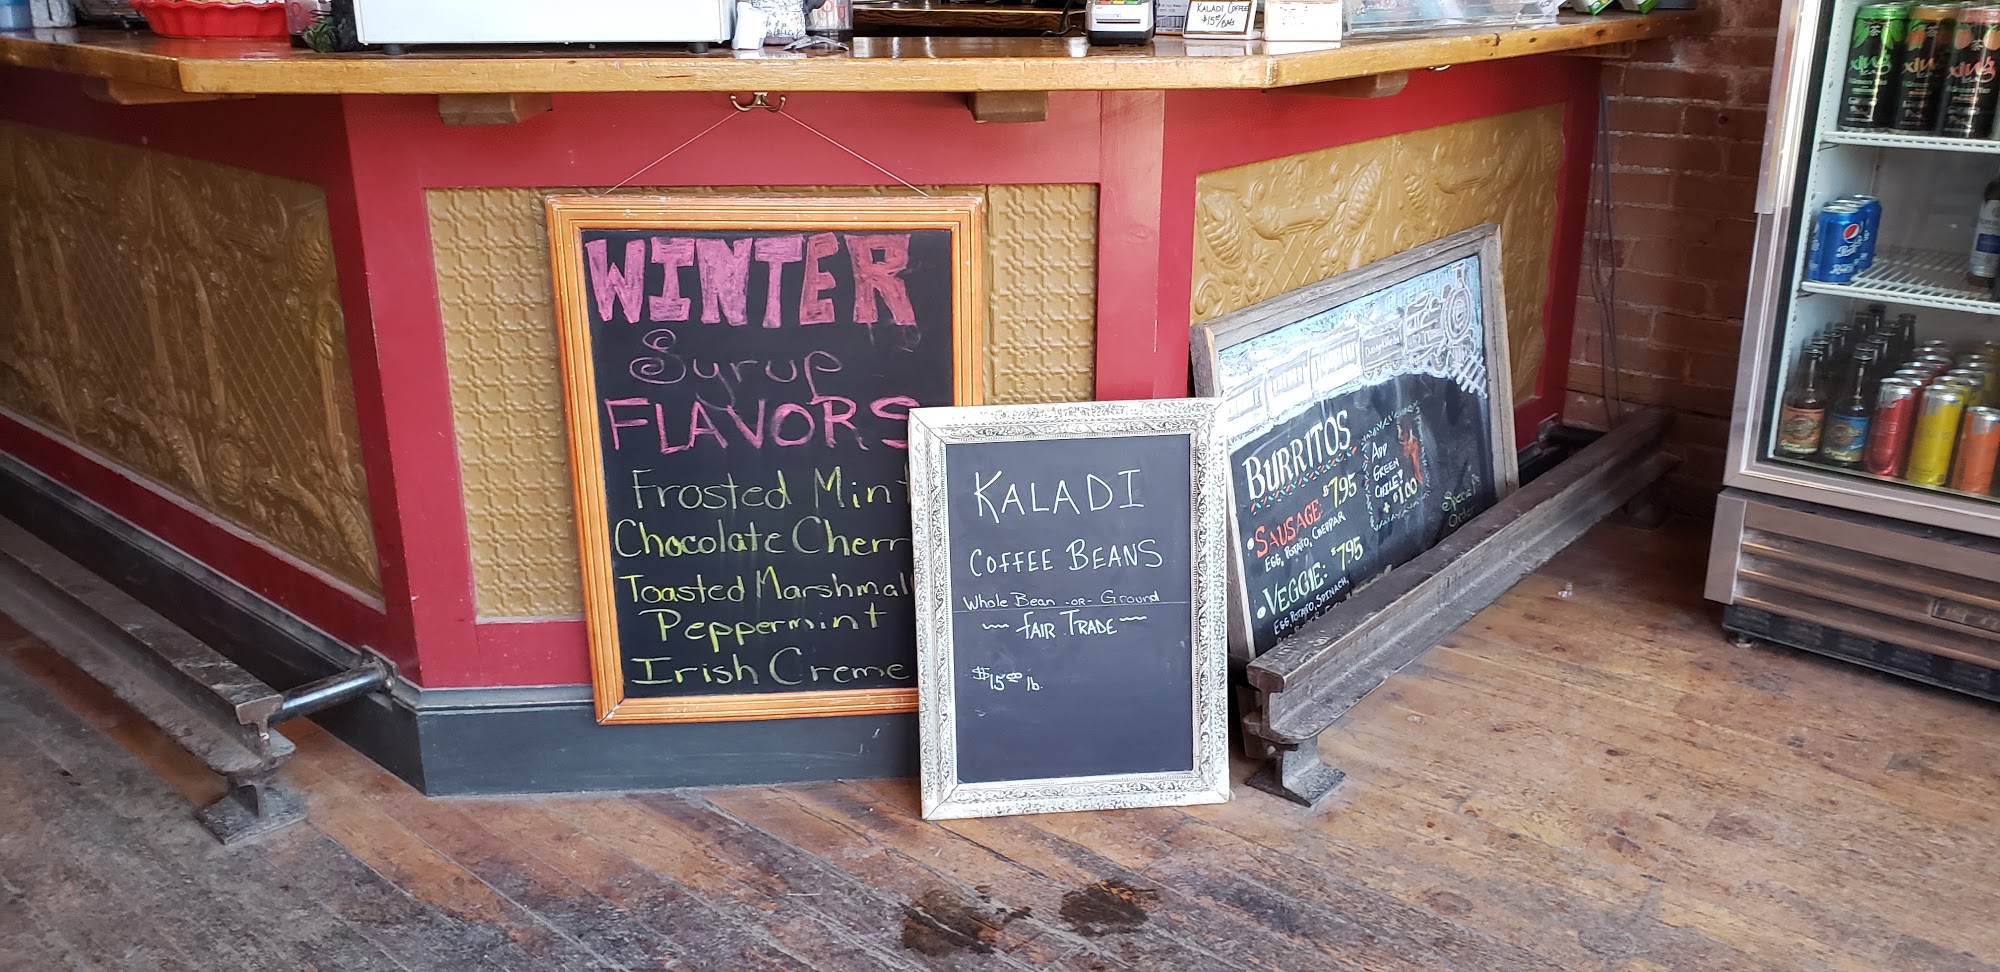 KALADI COFFEE
$15⁰⁰/BAG
WINTER
Syrup
FLAVORS
Frosted Mint
Chocolate Cherr
Toasted Marshmal
Peppermint
Irish Creme
KALADI
COFFEE BEANS
Whole Bean -OR- Ground
~ FAIR TRADE ~
$15⁰⁰ lb.
BURRITOS
• SAUSAGE: $7.95
EGG, POTATO, CHEDDAR
• VEGGIE: $7.95
EGG, POTATO, SPINACH,
ADD
GREEN
CHILE!
+ $1.00
Special
Order
xing
xing
xing
pepsi